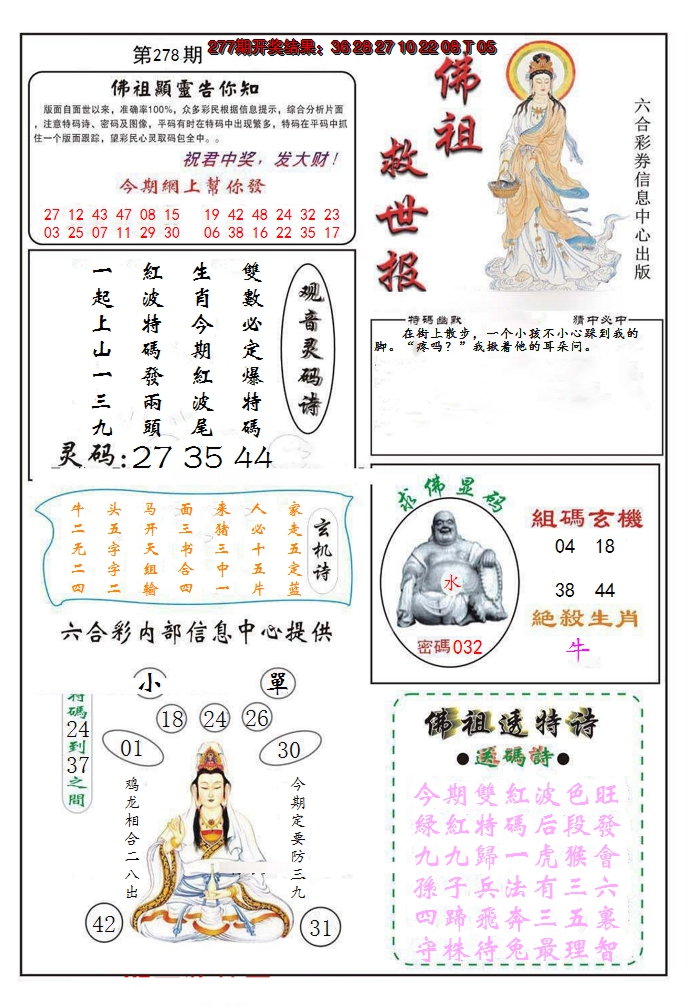 第278期
277期开奖结果：36 28 27 10 22 08 T 05
佛祖顯靈告你知
版面自面世以来，准确率100%，众多彩民根据信息提示，综合分析片面
，注意特码诗、密码及图像，平码有时在特码中出现繁多，特码在平码中抓
住一个版面跟踪，望彩民心灵取码包全中。。
祝君中奖，发大财！
今期網上幫你發
27 12 43 47 08 15 19 42 48 24 32 23
03 25 07 11 29 30 06 38 16 22 35 17
佛祖
救世报
六合彩券信息中心出版
观音灵码诗
雙數必定爆特碼
生肖今期紅波尾
紅波特碼發兩頭
一起上山一三九
灵码:27 35 44
特碼幽默
猜中必中
在街上散步，一个小孩不小心踩到我的
脚。“疼吗？”我揪着他的耳朵问。
玄机诗
家走五定蓝
人必十五片
来猪三中一
面三书合四
马开天组输
头五字字二
牛二无二四
六合彩内部信息中心提供
求佛显码
水
密碼032
組碼玄機
04 18
38 44
絕殺生肖
牛
小
單
特碼24到37之間
18 24 26
01
30
鸡龙相合二八出
今期定要防三九
42
31
佛祖透特诗
●送碼詩●
今期雙紅波色旺
緑紅特碼后段發
九九歸一虎猴會
孫子兵法有三六
四蹄飛奔三五裏
守株待兔最理智